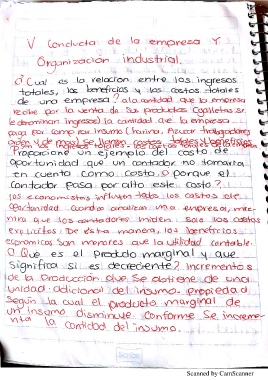 V Conducta de la empresa y
Organización industrial.
¿Cual es la relacion entre los ingresos
totales, los beneficios y los costos totales
de una empresa? a la cantidad que la empresa
recibe por la venta de sus productos (galletas) se
le denominan ingresos) la cantidad que la empresa
paga por comprar insumo (harina, Azucar trabajadores
Proporcione un ejemplo del costo de
oportunidad que un contador no tomaria
en cuenta como costo o porque el
contador pasa por alto este costo?
los economistas influyen todo los costos de
oportunidad cuando analizan una empresa, mie-
ntra que los contadores miden solo los costos
explicitos De esta manera, los beneficios
economicos son menores que la utilidad contable.
O Que es el producto marginal y que
significa si es decreciente? incrementos
de la produccion que se obtiene de una
unidad adicional del insumo, propiedad
según la cual el producto marginal de
un insumo disminuye conforme se increme-
nta la cantidad del insumo.
Scanned by CamScanner